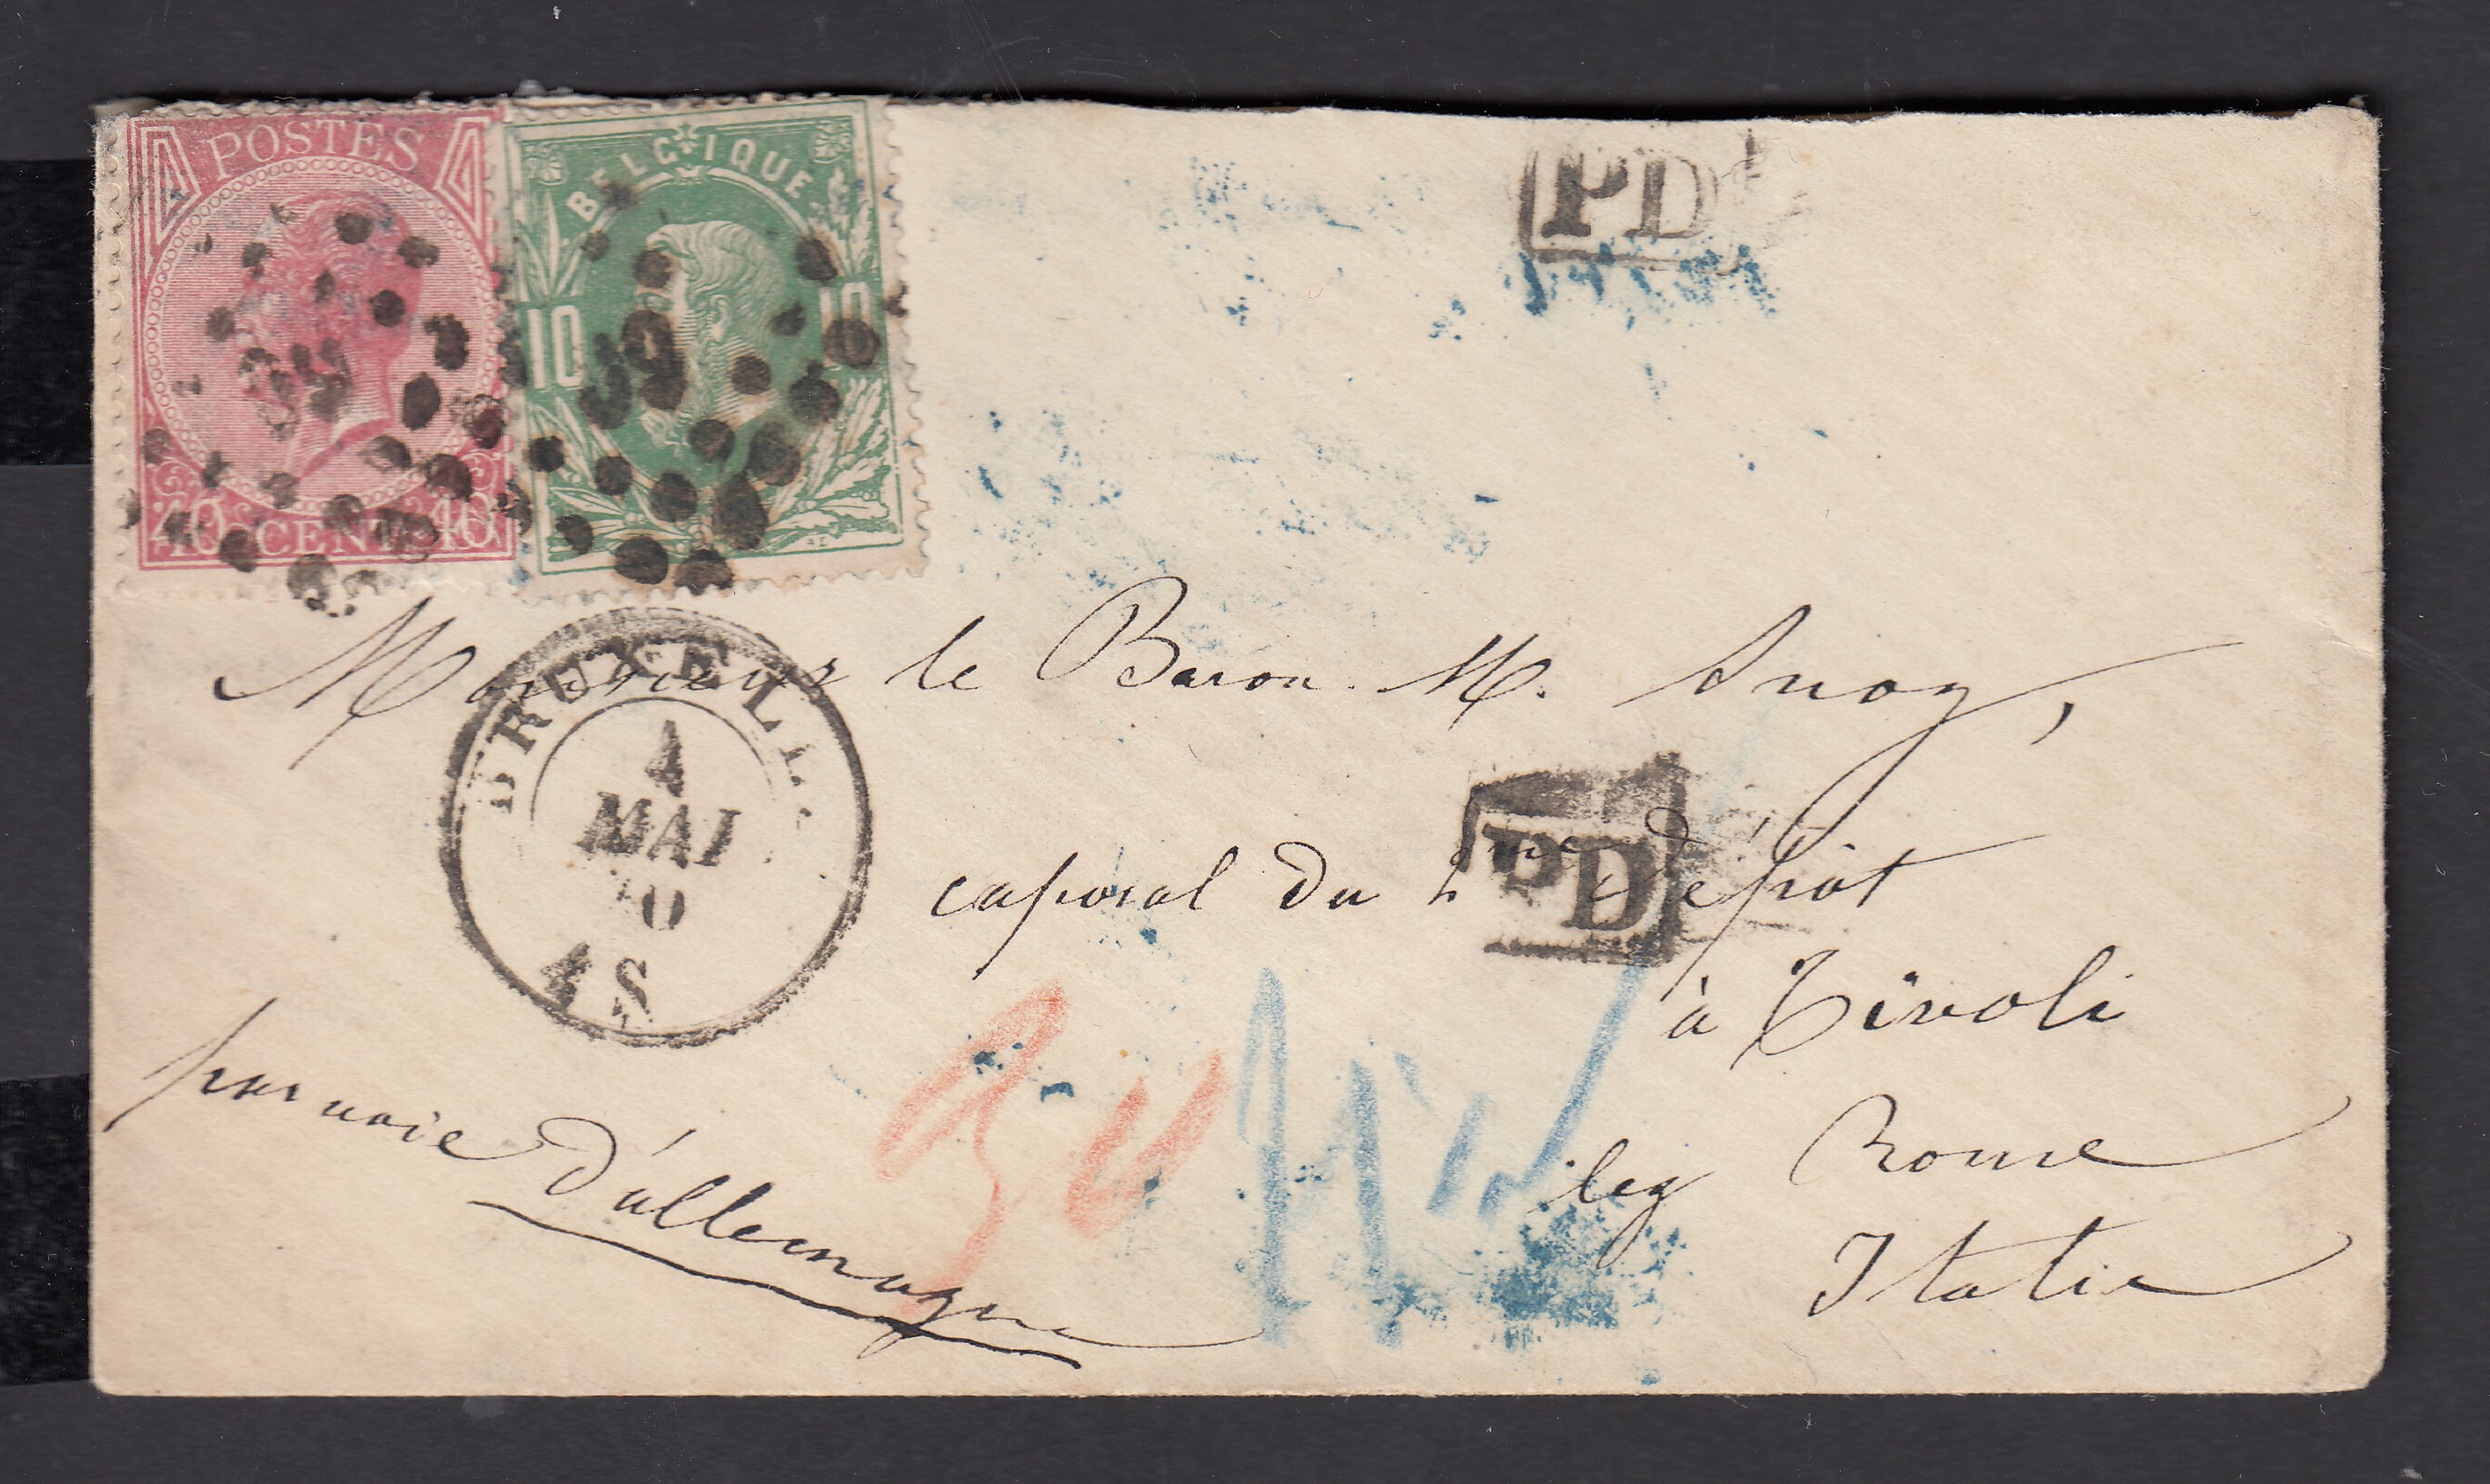 POSTES
40 CENT 40
BELGIQUE
10 10
PD
Monsieur le Baron M. Snoy,
BRUXELL
4
MAI
70
4S
PD
caporal du 2me Dépôt
à Tivoli
lez Rome
Italie
par voie d'allemagne